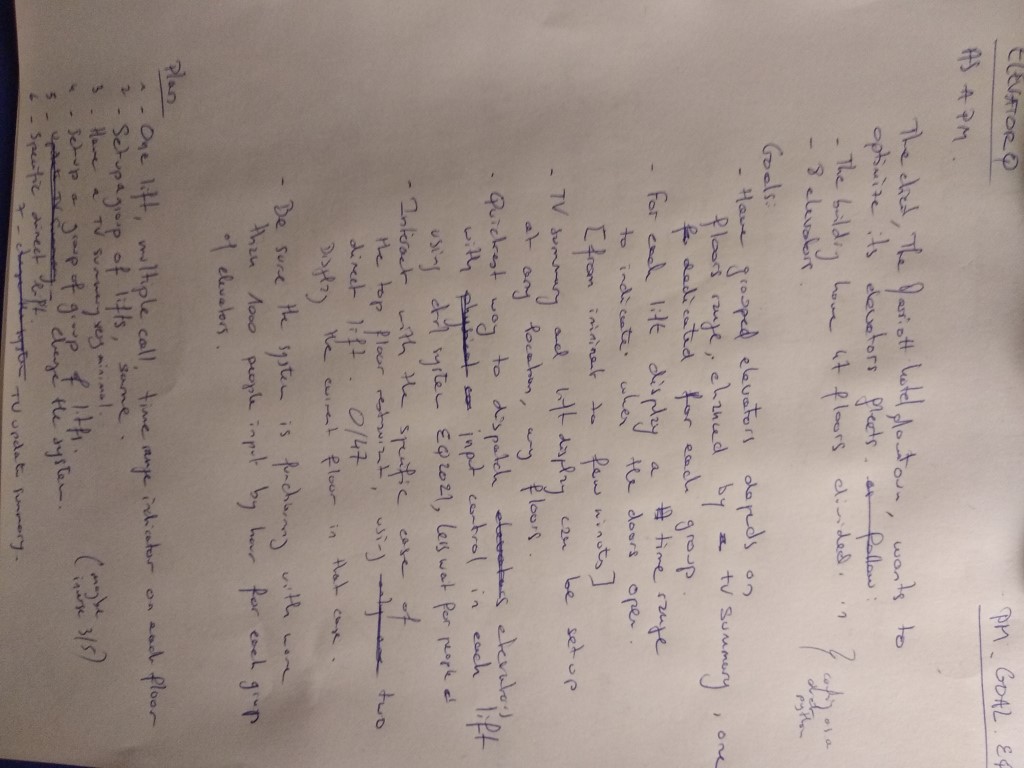 ELEVATORQ
PM_GOAL_EQ
AS A PM.
The client, The Marriott hotel downtown, wants to
optimize its elevators fleets. as follow:
- The building have 47 floors divided. in
- 8 elevators.
config as a
python
Goals:
- Have grouped elevators depends on
floors range, by a TV summary, one
dedicated for each group.
- For each lift display a time range
to indicate when the doors open.
[from iminent to few minuts]
- TV summary and lift display can be set up
at any location, any floors.
- Quickest way to dispatch elevators elevators
with physical input control in each lift
using ctrl system EQ2021, less wait for people
- Interact with the specific case of
the top floor restraint, using only two
direct lift. 0/47
Display the current floor in that case.
- Be sure the system is functionning with more
than 1000 people input by hour for each group
of elevators.
Plan
1 - One lift, multiple call, time range indicator on each floor
2 - Setup a group of lifts, same.
3 - Have a TV summary very minimal.
4 - Setup a group of group of lifts.
(maybe
inverse 3/5)
5 - Update TV Summary - change the system.
6 - Specific direct lift.
7 - change the system TV update summary.